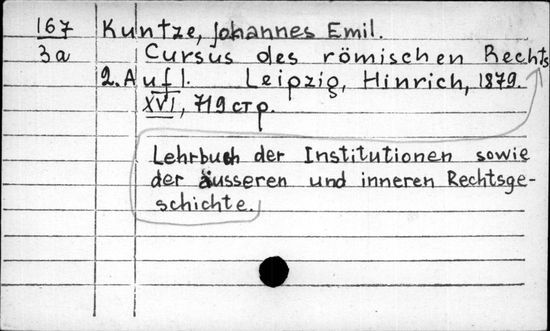 167 Kuntze, Johannes Emil.
3a Cursus des römischen Rechts
2. Aufl. Leipzig, Hinrich, 1879.
XVI, 719 стр.
Lehrbuch der Institutionen sowie
der äusseren und inneren Rechtsge-
schichte.